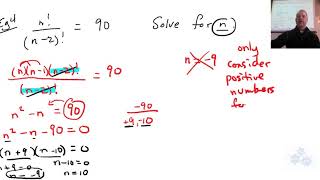 Eg4 n!/(n-2)! = 90 Solve for n.
(n)(n-1)(n-2)!/(n-2)! = 90
n² - n = 90
n² - n - 90 = 0
(n+9)(n-10) = 0
n+9=0 n-10=0
n=-9 n=10
-90
+9, -10
n = -9
only
consider
positive
numbers
for